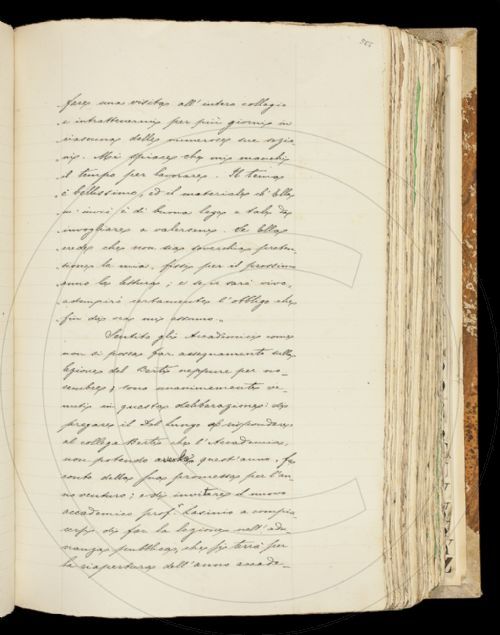 fare una visita all'intero collegio
e intrattenermi per più giorni in
ciascuna delle numerose sue sezio-
ni. Mi spiace che mi manchi
il tempo per lavorare. Il tema
è bellissimo, ed il materiale ch'Ella
m'invii è di buona lega e tale da
invogliare a valersene. Se Ella
crede che non sia soverchia preten-
sione la mia, fissi per il prossimo
anno la lettura; e se io sarò vivo,
adempirò certamente l'obbligo che
fin da ora mi assumo.
Sentito gli Accademici come
non si possa far assegnamento sulla
lezione del Berti neppure per no-
vembre, sono unanimemente ve-
nuti in questa deliberazione: di
pregare il Dal Lungo a rispondere
al collega Berti che l'Accademia,
non potendo quest'anno, fa
conto della sua promessa per l'an-
no venturo; e di invitare il nuovo
accademico prof. Lasinio a compia-
cersi di far la lezione nell'adu-
nanza pubblica, che si terrà per
la riapertura dell'anno accade-